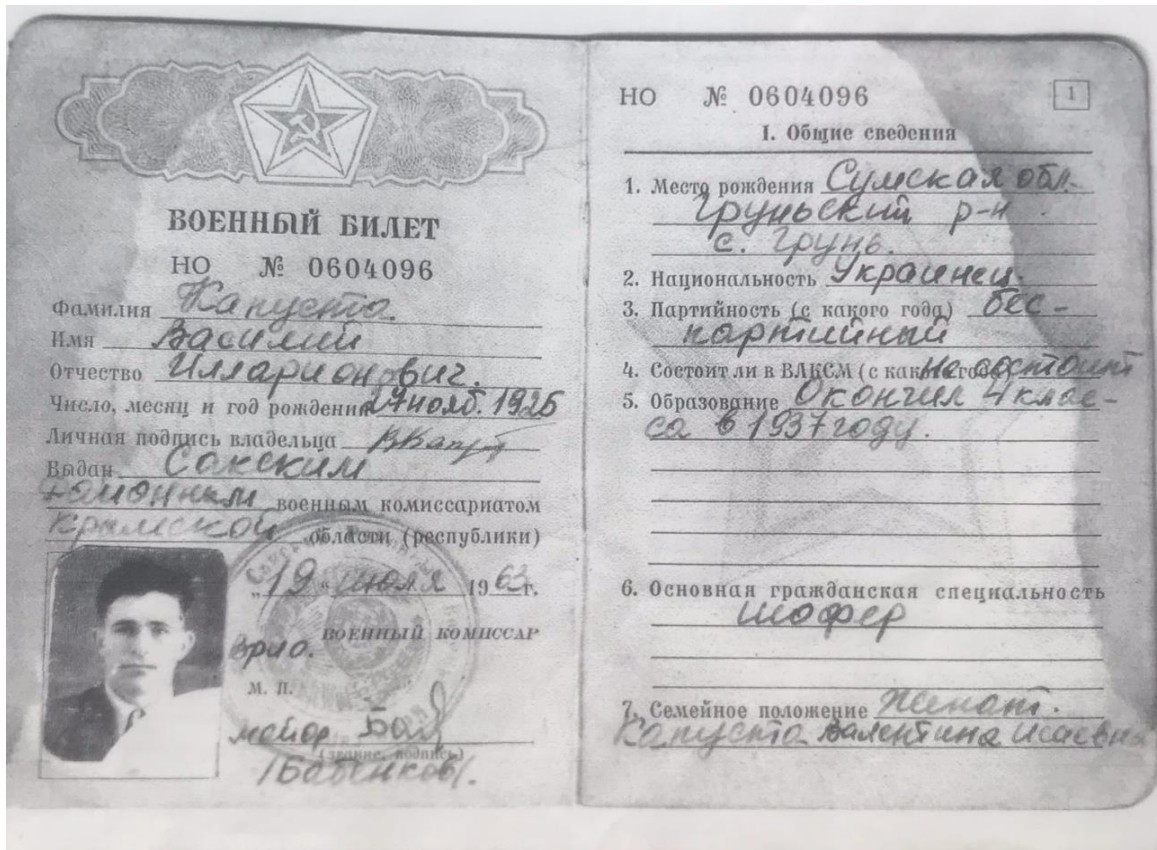 ВОЕННЫЙ БИЛЕТ
НО № 0604096
Фамилия Капуста.
Имя Василий
Отчество Илларионович.
Число, месяц и год рождения 27 нояб. 1926
Личная подпись владельца ВКапуст
Выдан Сакским
районным военным комиссариатом
Крымской области (республики)
„19" июля 1963 г.
ВОЕННЫЙ КОМИССАР
Врио.
М. П.
майор
(звание, подпись)
НО № 0604096
1
I. Общие сведения
1. Место рождения Сумская обл.
Груньский р-н
с. Грунь.
2. Национальность Украинец.
3. Партийность (с какого года) бес-
партийный
4. Состоит ли в ВЛКСМ (с как не состоит
5. Образование Окончил 4 клас-
са в 1937 году.
6. Основная гражданская специальность
шофер
7. Семейное положение Женат.
Капуста Валентина Исаевна